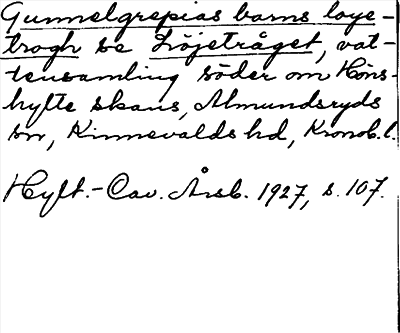 Gunnelgrepias barns loye-
trogh se Löjetråget, vat-
tensamling söder om Höns-
hylte skans, Almundsryds
sn, Kinnevalds hd, Kronob. l.
Hylt.-Cav. Årsb. 1927, s. 107.